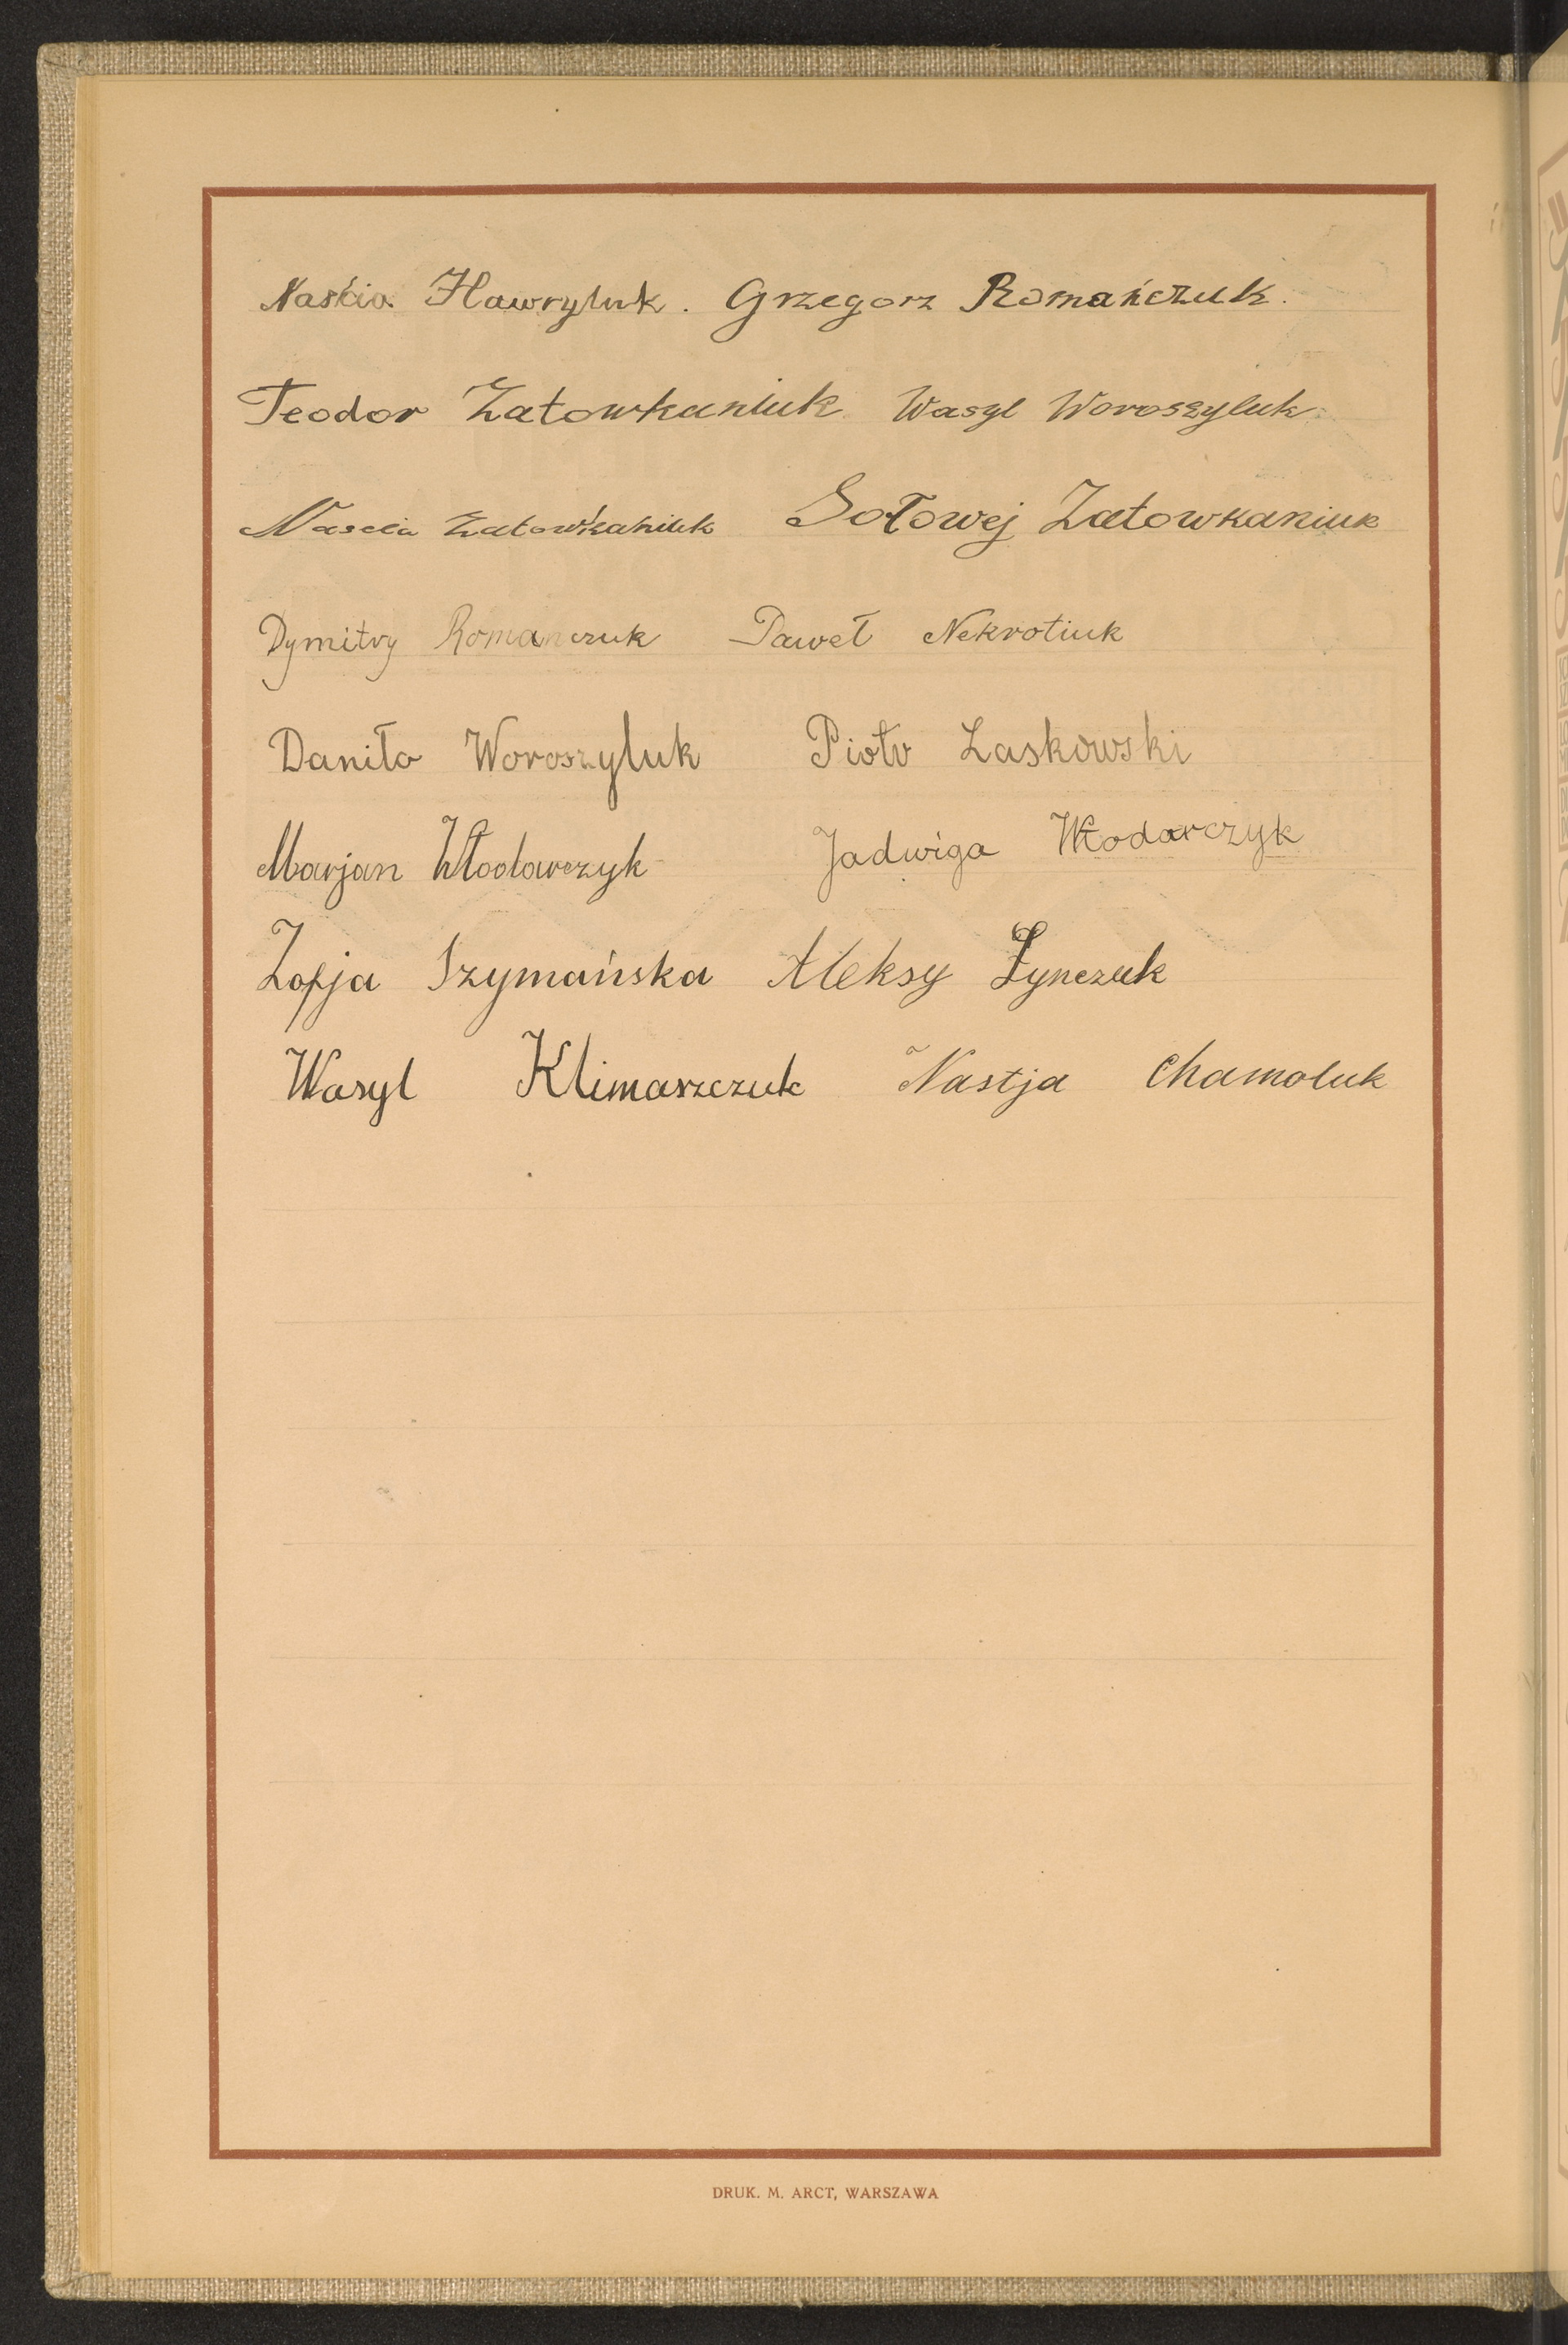 Naścia Hawryluk. Grzegorz Romańczuk.
Teodor Zatowkaniuk Wasyl Woroszyluk
Nascia Zatowkaniuk Sołowej Zatowkaniuk
Dymitry Romanczuk Paweł Nekrotiuk
Daniło Woroszyluk Piotr Laskowski
Marjan Włodarczyk Jadwiga Włodarczyk
Zofja Szymańska Aleksy Łynczuk
Wasyl Klimaszczuk Nastja Chamoluk
DRUK. M. ARCT, WARSZAWA